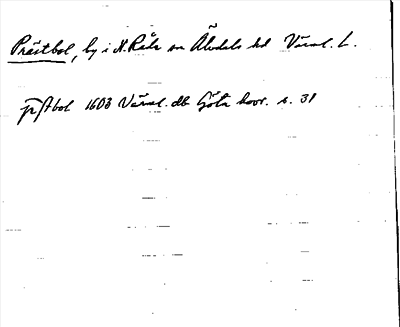 Prästbol, by i N. Råda sn Älvdals hd Värml. L.
pstbol 1603 Värml. db Göta hovr. s. 31